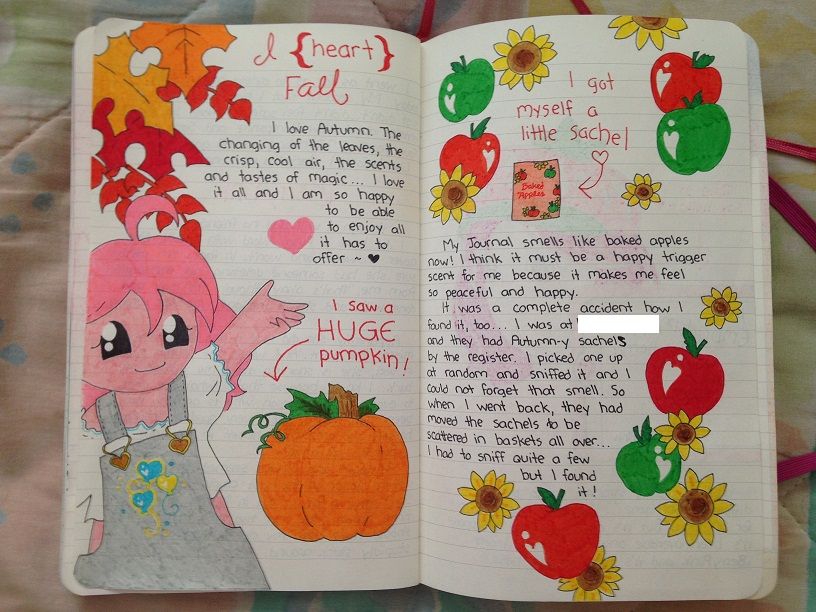 I {heart}
Fall
I love Autumn. The
changing of the leaves, the
crisp, cool air, the scents
and tastes of magic... I love
it all and I am so happy
to be able
to enjoy all
it has to
offer ~ ♥
I saw a
HUGE
pumpkin!
I got
myself a
little sachel
Baked
Apples
My Journal smells like baked apples
now! I think it must be a happy trigger
scent for me because it makes me feel
so peaceful and happy.
It was a complete accident how I
found it, too... I was at
and they had Autumn-y sachels
by the register. I picked one up
at random and sniffed it and I
could not forget that smell. So
when I went back, they had
moved the sachels to be
scattered in baskets all over...
I had to sniff quite a few
but I found
it!